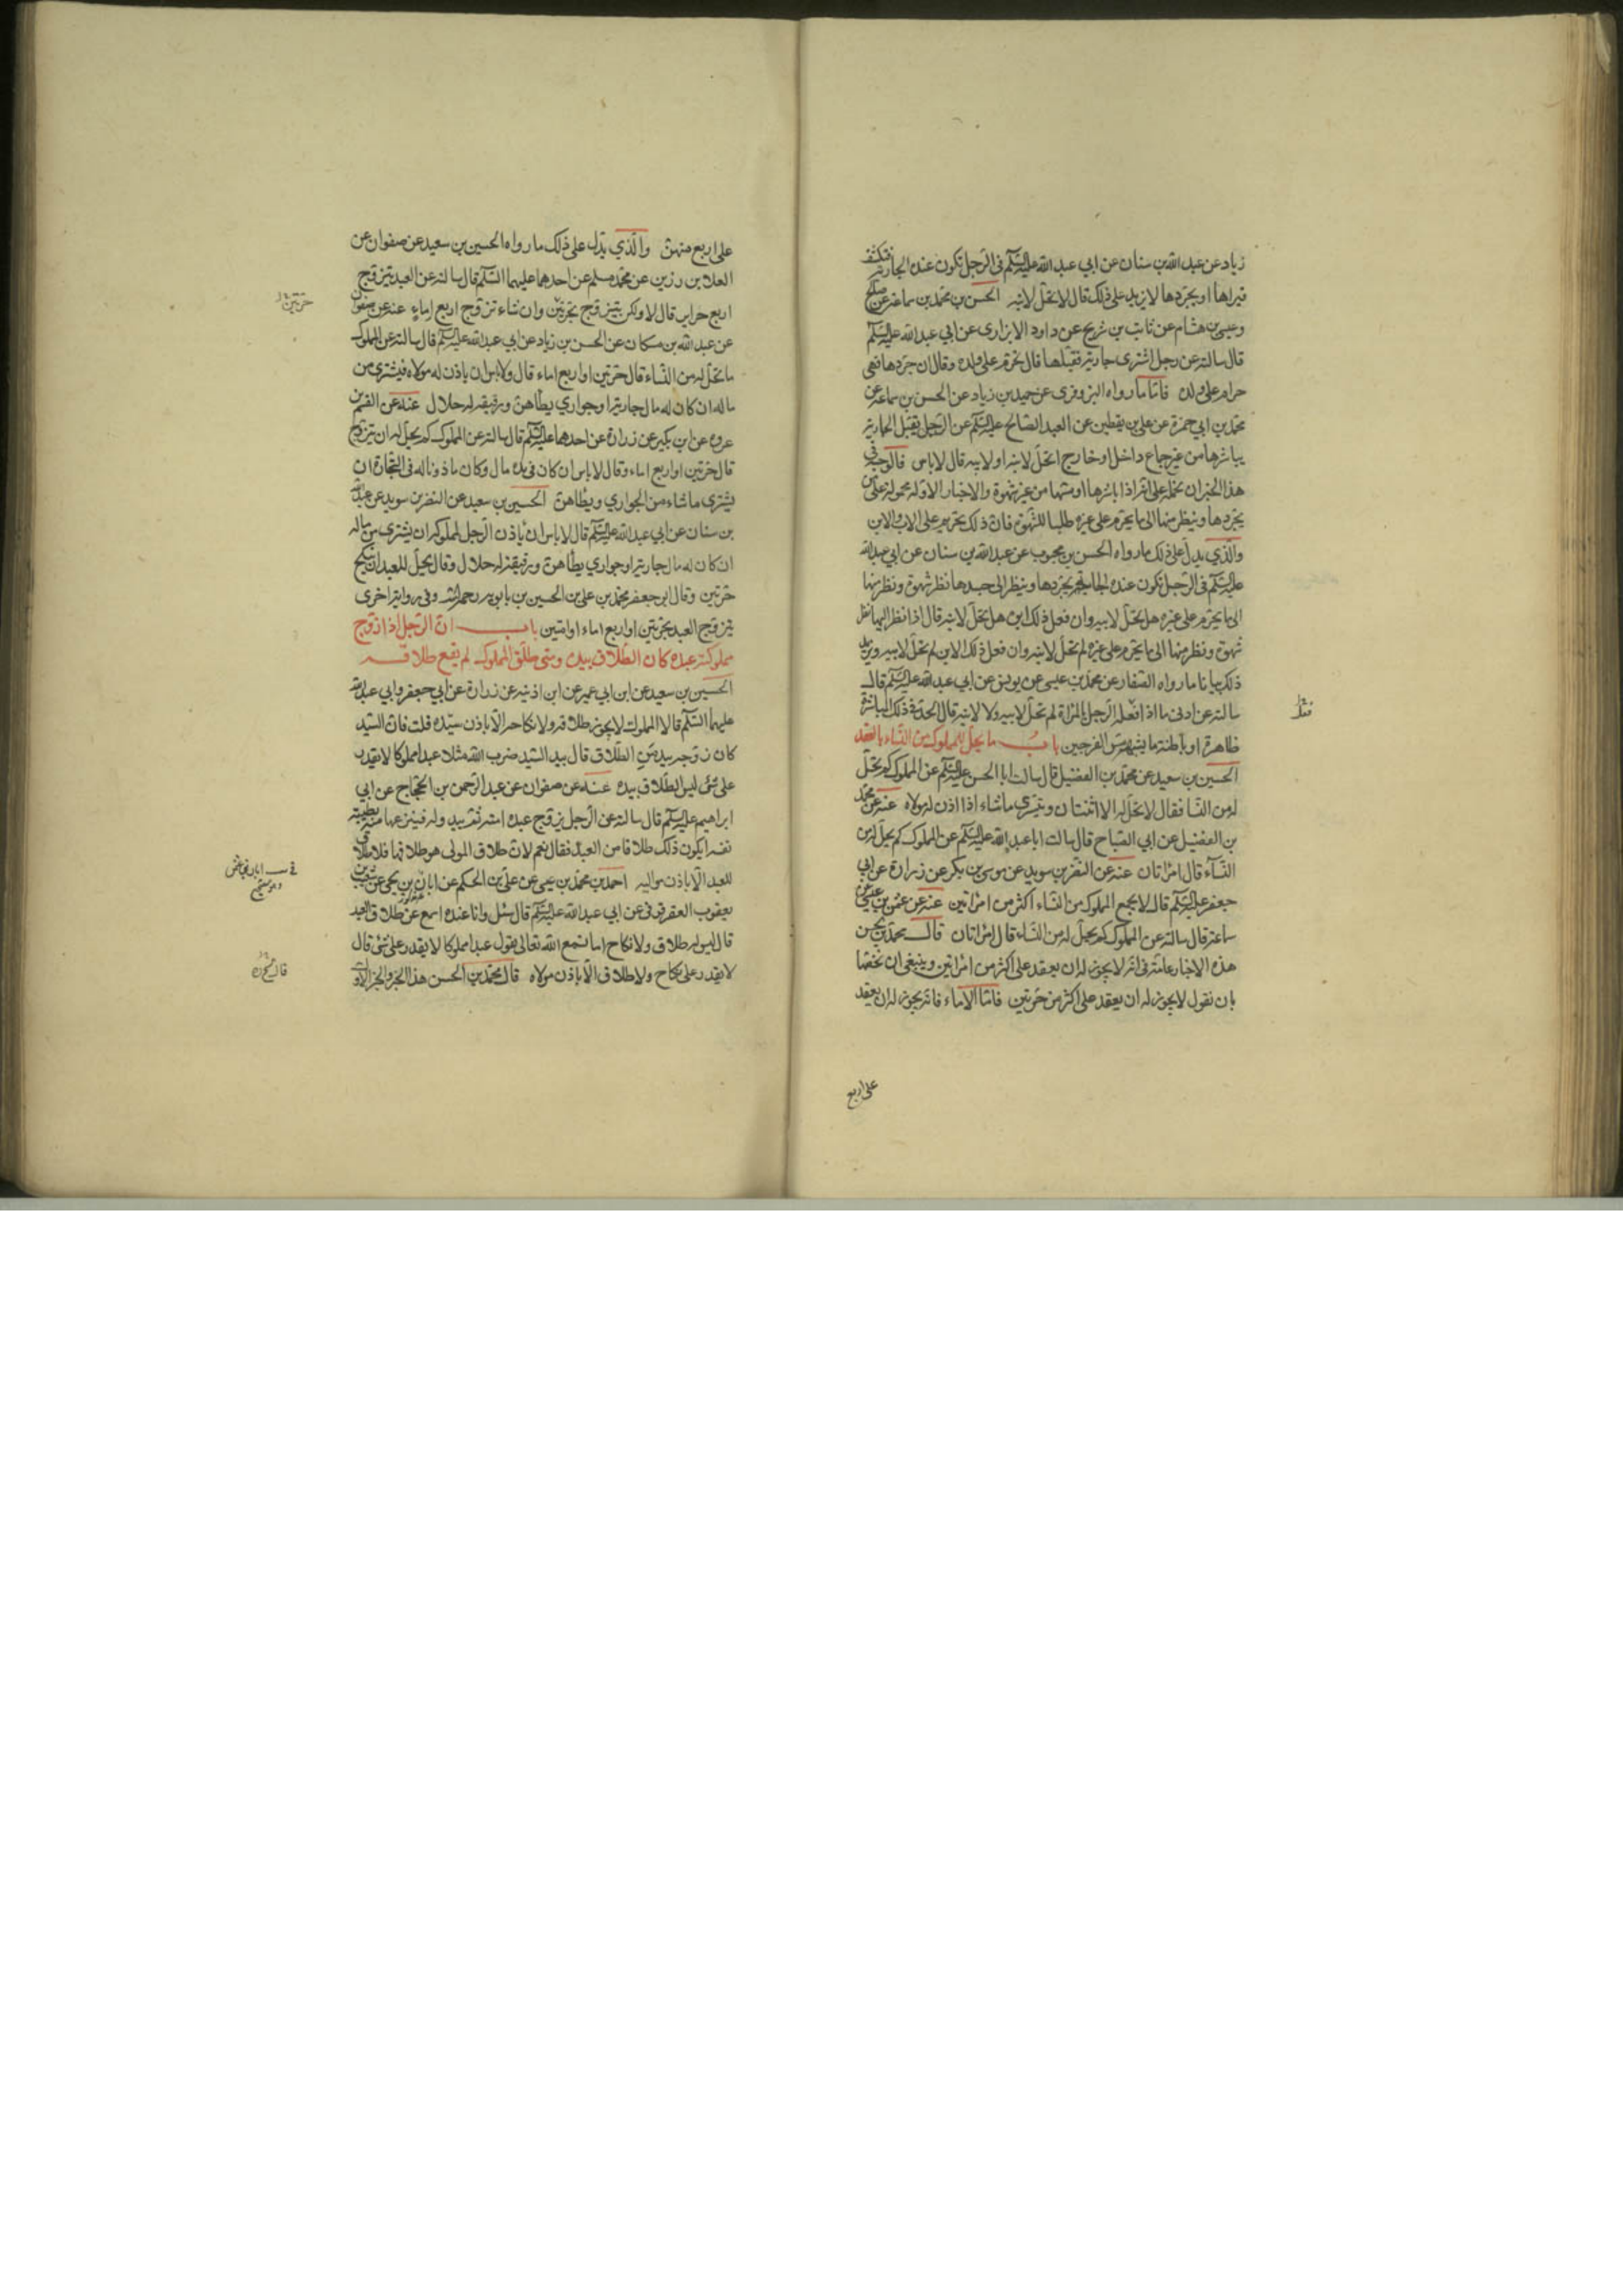 زياد عن عبد الله بن سنان عن ابي عبد الله عليه السلم في الرجل تكون عنده الجارية فتكشف
فيراها او يجردها لا يزيد على ذلك قال لا تحل لابنه الحسن بن محمد بن سماعة عن صالح
وعيسى بن هشام عن ثابت بن شريح عن داود الابزاري عن ابي عبد الله عليه السلم
قال سالته عن رجل اشترى جارية فقبلها قال تحرم على ولده وقال ان جردها فهي
حرام على ولده فاما ما رواه البزوفري عن حميد بن زياد عن الحسن بن سماعة عن
محمد بن ابي حمزة عن علي بن يقطين عن العبد الصالح عليه السلم عن الرجل يقبل الجارية
يباشرها من غير جماع داخل او خارج اتحل لابنه او لابيه قال لا باس فالوجه في
هذا الخبر ان نحمله على انه اذا باشرها او مسها من غير شهوة والاخبار الاولة محمولة على من
يجردها وينظر منها الى ما يحرم على غيره طلبا للشهوة فان ذلك يحرم على الاب والابن
والذي يدل على ذلك ما رواه الحسن بن محبوب عن عبد الله بن سنان عن ابي عبد الله
عليه السلم في الرجل تكون عنده الجارية يجردها وينظر الى جسدها نظر شهوة ونظر منها
الى ما يحرم على غيره هل تحل لابيه وان فعل ذلك ابوه هل تحل لابنه قال اذا نظر اليها نظر
شهوة ونظر منها الى ما يحرم على غيره لم تحل لابنه وان فعل ذلك الابن لم تحل لابيه ويزيد
ذلك بيانا ما رواه الصفار عن محمد بن عيسى عن يونس عن ابي عبد الله عليه السلم قال
سالته عن ادنى ما اذا فعله الرجل بالمراة لم تحل لابيه ولا لابنه قال الحد في ذلك المباشرة
ظاهرة او باطنة ما يشبه مس الفرجين باب ما يحل للمملوك من النساء بالعقد
الحسين بن سعيد عن محمد بن الفضيل قال سالت ابا الحسن عليه السلم عن المملوك كم تحل
له من النسا فقال لا تحل له الا اثنتان ويتسرى ما شاء اذا اذن له مولاه عنه عن محمد
بن الفضيل عن ابي الصباح قال سالت ابا عبد الله عليه السلم عن المملوك كم يحل له من
النساء قال امراتان عنه عن النضر بن سويد عن موسى بن بكر عن زرارة عن ابي
جعفر عليه السلم قال لا يجمع المملوك من النساء اكثر من امراتين عنه عن عثمن بن عيسى عن
سماعة قال سالته عن المملوك كم يحل له من النساء قال امراتان قال محمد بن الحسن
هذه الاخبار عامة في انه لا يجوز له ان يعقد على اكثر من امراتين وينبغي ان نخصها
بان نقول لا يجوز له ان يعقد على اكثر من حرتين فاما الاماء فانه يجوز له ان يعقد
على اربع
على اربع منهن والذي يدل على ذلك ما رواه الحسين بن سعيد عن صفوان عن
العلا بن رزين عن محمد مسلم عن احدهما عليهما السلم قال سالته عن العبد يتزوج
اربع حراير قال لا ولكن يتزوج حرتين وان شاء تزوج اربع اماء عنه عن صفوان
حرتين
عن عبد الله بن مسكان عن الحسن بن زياد عن ابي عبد الله عليه السلم قال سالته عن المملوك
ما تحل له من النساء قال حرتين او اربع اماء قال ولا باس ان ياذن له مولاه فيشترى من
ماله ان كان له مال جارية او جواري يطأهن ورقيقه له حلال عنه عن القسم بن
عروة عن ابن بكير عن زرارة عن احدهما عليه السلم قال سالته عن المملوك كم يحل له ان يتزوج
قال حرتين او اربع اماء وقال لا باس ان كان في يده مال وكان ماذونا له في التجارة ان
يشترى ما شاء من الجواري ويطأهن الحسين بن سعيد عن النضر بن سويد عن عبد الله
بن سنان عن ابي عبد الله عليه السلم قال لا باس ان ياذن الرجل لمملوكه ان يشترى من ماله
ان كان له مال جارية او جواري يطأهن ورقيقه له حلال وقال يحل للعبد ان ينكح
حرتين وقال ابو جعفر محمد بن علي بن الحسين بن بابويه رحمه الله وفي رواية اخرى
يتزوج العبد بحرتين او اربع اماء او امتين باب ان الرجل اذا زوج
مملوكته عبده كان الطلاق بيده ومتى طلق المملوك لم يقع طلاقه
الحسين بن سعيد عن ابن ابي عمير عن ابن اذينة عن زرارة عن ابي جعفر وابي عبد الله
عليهما السلم قالا المملوك لا يجوز طلاقه ولا نكاحه الا باذن سيده قلت فان السيد
كان زوجه بيد من الطلاق قال بيد السيد ضرب الله مثلا عبدا مملوكا لا يقدر
على شئ ليس الطلاق بيده عنه عن صفوان عن عبد الرحمن بن الحجاج عن ابي
ابراهيم عليه السلم قال سالته عن الرجل يزوج عبده امته ثم يبدو له فينزعها منه بطيبة
نفسه ايكون ذلك طلاقا من العبد فقال نعم لان طلاق المولى هو طلاقها فلا طلاق
للعبد الا باذن مواليه احمد بن محمد بن عيسى عن علي بن الحكم عن ابان بن يحيى عن شعيب بن
يعقوب العقرقوفي عن ابي عبد الله عليه السلم قال سئل وانا عنده اسمع عن طلاق العبد
قال ليس له طلاق ولا نكاح اما تسمع الله تعالى يقول عبدا مملوكا لا يقدر على شئ قال
لا يقدر على نكاح ولا طلاق الا باذن مولاه قال محمد بن الحسن هذا الخبر والخبر الاول